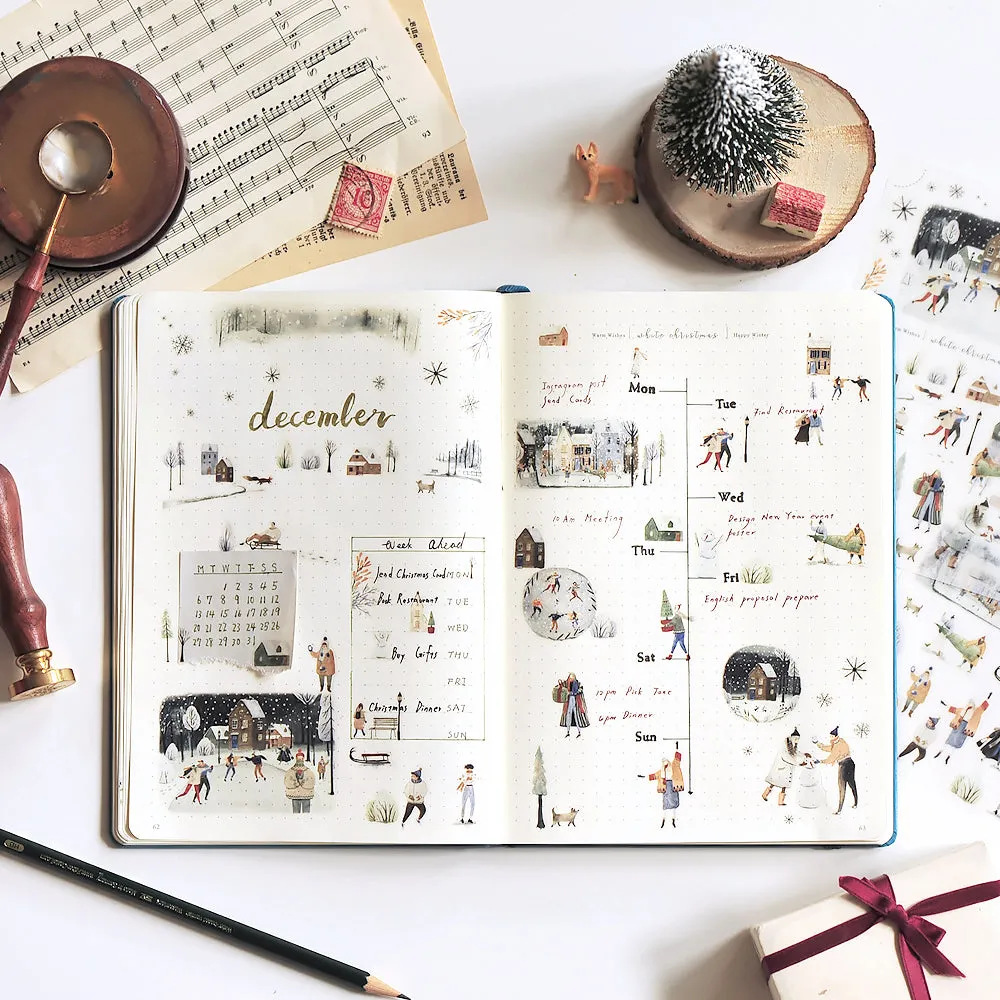 93
december
M T W T F S S
1 2 3 4 5
6 7 8 9 10 11 12
13 14 15 16 17 18 19
20 21 22 23 24 25 26
27 28 29 30 31
Week Ahead
Send Christmas Card MON
Book Restaurant TUE
WED
Buy Gifts THU
FRI
Christmas Dinner SAT
SUN
62
Warm Wishes | white christmas | Happy Winter
Instagram post
Send Cards
Mon
Tue
Find Restaurant
Wed
10 Am Meeting
Design New Year event
poster
Thu
Fri
English proposal prepare
Sat
12pm Pick Jane
6pm Dinner
Sun
63
white christmas